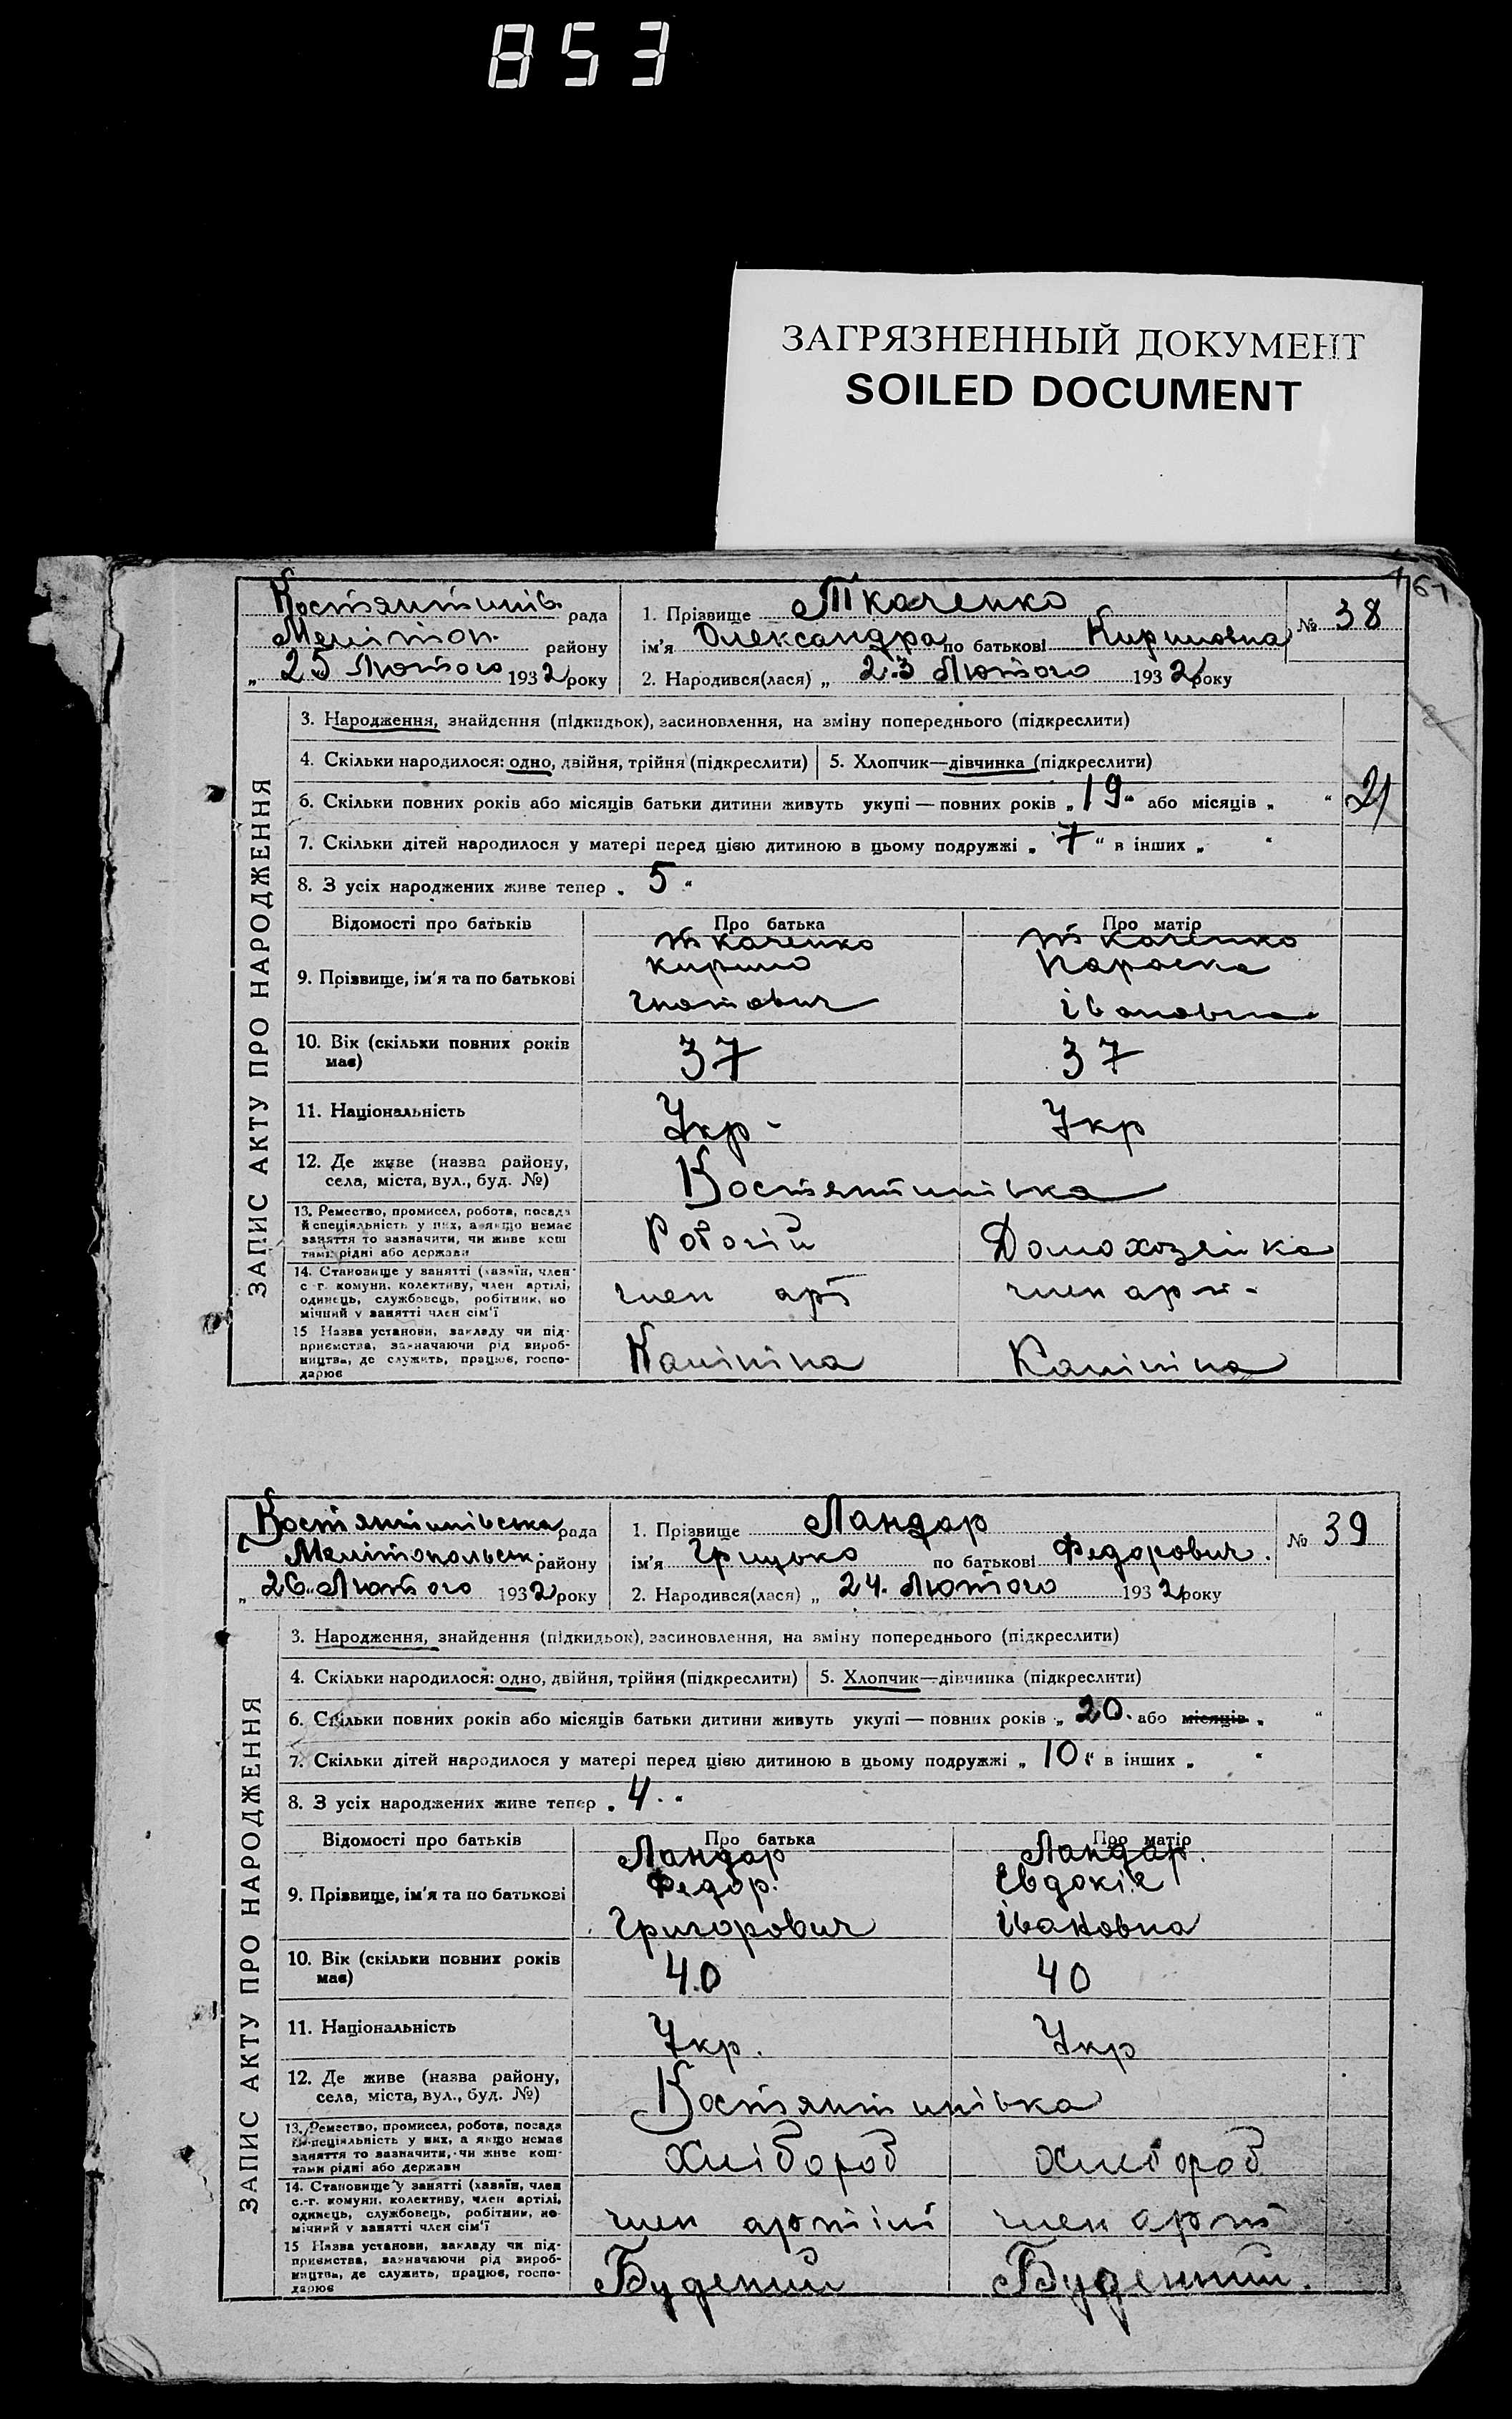 853
ЗАГРЯЗНЕННЫЙ ДОКУМЕНТ
SOILED DOCUMENT
61
Костянтинів. рада
Мелітоп. району
„ 25 Лютого 1932 року
1. Прізвище Ткаченко
ім'я Олександра по батькові Кириловна
2. Народився(лася) „ 23 Лютого 1932 року
№ 38
ЗАПИС АКТУ ПРО НАРОДЖЕННЯ
3. Народження, знайдення (підкидьок), засиновлення, на зміну попереднього (підкреслити)
4. Скільки народилося: одно, двійня, трійня (підкреслити) 5. Хлопчик—дівчинка (підкреслити)
6. Скільки повних років або місяців батьки дитини живуть укупі — повних років „ 19 “ або місяців „ “
21
7. Скільки дітей народилося у матері перед цією дитиною в цьому подружжі „ 7 “ в інших „ “
8. З усіх народжених живе тепер „ 5 “
Відомості про батьків Про батька Про матір
9. Прізвище, ім'я та по батькові
Ткаченко Ткаченко
Кирило Параска
Гнатович Івановна
10. Вік (скільки повних років має) 37 37
11. Національність Укр. Укр
12. Де живе (назва району,
села, міста, вул., буд. №) Костянтинівка
13. Ремество, промисел, робота, посада
й спеціяльність у них, а якщо немає
заняття то зазначити, чи живе кош
тами рідні або держави
Робочій Домохозяйка
14. Становище у занятті (хазяїн, член
с.-г. комуни, колективу, член артілі,
одинець, службовець, робітник, по
мічний у занятті член сім'ї
член арт член арт.
15 Назва установи, закладу чи під-
приємства, зазначаючи рід вироб-
ництва, де служить, працює, госпо-
дарює
Калініна Калініна
Костянтинівська рада
Мелітопольськ. району
„ 26 „ Лютого 1932 року
1. Прізвище Ландар
ім'я Грицько по батькові Федорович.
2. Народився(лася) „ 24. Лютого 1932 року
№ 39
ЗАПИС АКТУ ПРО НАРОДЖЕННЯ
3. Народження, знайдення (підкидьок), засиновлення, на зміну попереднього (підкреслити)
4. Скільки народилося: одно, двійня, трійня (підкреслити) 5. Хлопчик—дівчинка (підкреслити)
6. Скільки повних років або місяців батьки дитини живуть укупі — повних років „ 20. або місяців „ “
7. Скільки дітей народилося у матері перед цією дитиною в цьому подружжі „ 10 “ в інших „ “
8. З усіх народжених живе тепер „ 4. “
Відомості про батьків Про батька Про матір
9. Прізвище, ім'я та по батькові
Ландар Ландар.
Федор. Евдокія
Григорович Івановна
10. Вік (скільки повних років має) 40 40
11. Національність Укр. Укр
12. Де живе (назва району,
села, міста, вул., буд. №) Костянтинівка
13. Ремество, промисел, робота, посада
й спеціяльність у них, а якщо немає
заняття то зазначити, чи живе кош-
тами рідні або держави
Хлібороб Хлібороб
14. Становище у занятті (хазяїн, член
с.-г. комуни, колективу, член артілі,
одинець, службовець, робітник, по-
мічний у занятті член сім'ї
член артілі член арт
15 Назва установи, закладу чи під-
приємства, зазначаючи рід вироб-
ництва, де служить, працює, госпо-
дарює
Будений Буденний.